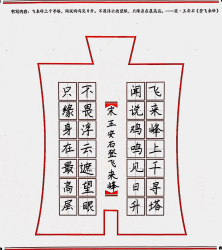 书写内容：飞来峰上千寻塔，闻说鸡鸣见日升。不畏浮云遮望眼，只缘身在最高层。——宋·王安石《登飞来峰》
飞来峰上千寻塔
闻说鸡鸣见日升
【宋王安石登飞来峰】
不畏浮云遮望眼
只缘身在最高层